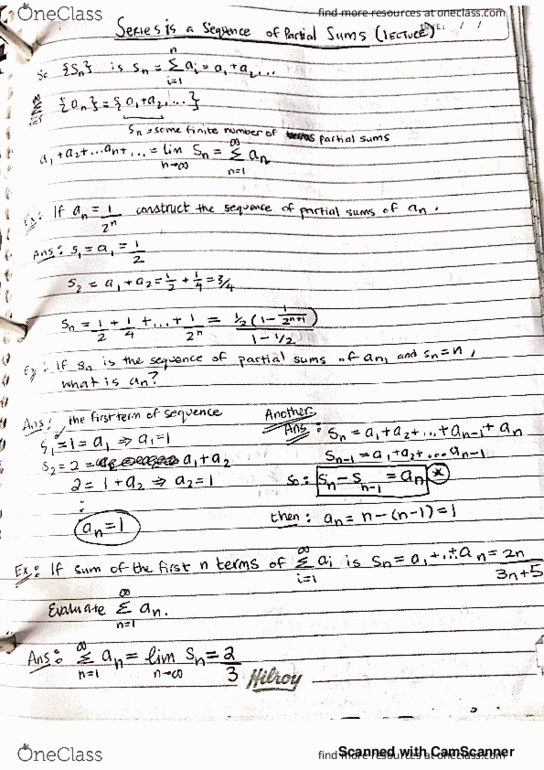 OneClass
find more resources at oneclass.com
Series is a Sequence of Partial Sums (LECTURE)
{Sn} is Sn = Σ ai = a1 + a2 ...
n
i=1
{an} = {a1 + a2, ...}
Sn → some finite number of partial sums
a1 + a2 + ... an + ... = lim Sn = Σ an
n→∞
∞
n=1
Ex: If an = 1/2^n construct the sequence of partial sums of an.
Ans: s1 = a1 = 1/2
s2 = a1 + a2 = 1/2 + 1/4 = 3/4
sn = 1/2 + 1/4 + ... + 1/2^n = 1/2 (1 - 1/2^(n+1)) / 1 - 1/2
Ex: If sn is the sequence of partial sums of an, and sn = n,
what is an?
Ans: the first term of sequence
s1 = 1 = a1 ⇒ a1 = 1
s2 = 2 = a1 + a2
2 = 1 + a2 ⇒ a2 = 1
:
an = 1
Another
Ans: Sn = a1 + a2 + ... + an-1 + an
Sn-1 = a1 + a2 + ... an-1
so: Sn - Sn-1 = an *
then: an = n - (n-1) = 1
Ex: If sum of the first n terms of Σ ai is Sn = a1 + ... + an = 2n/3n+5
∞
i=1
Evaluate Σ an.
∞
n=1
Ans: Σ an = lim Sn = 2/3
∞
n=1
n→∞
Hilroy
OneClass
find more resources at oneclass.com
Scanned with CamScanner